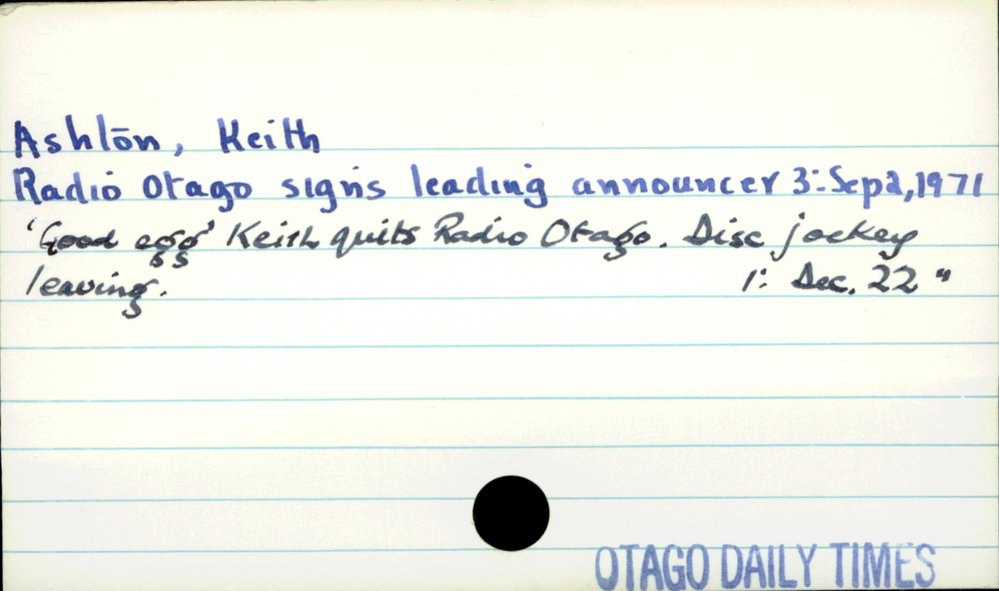 Ashton, Keith
Radio Otago signs leading announcer 3: Sep 2, 1971
'Good egg' Keith quits Radio Otago. Disc jockey
leaving. 1: Dec. 22 "
OTAGO DAILY TIMES